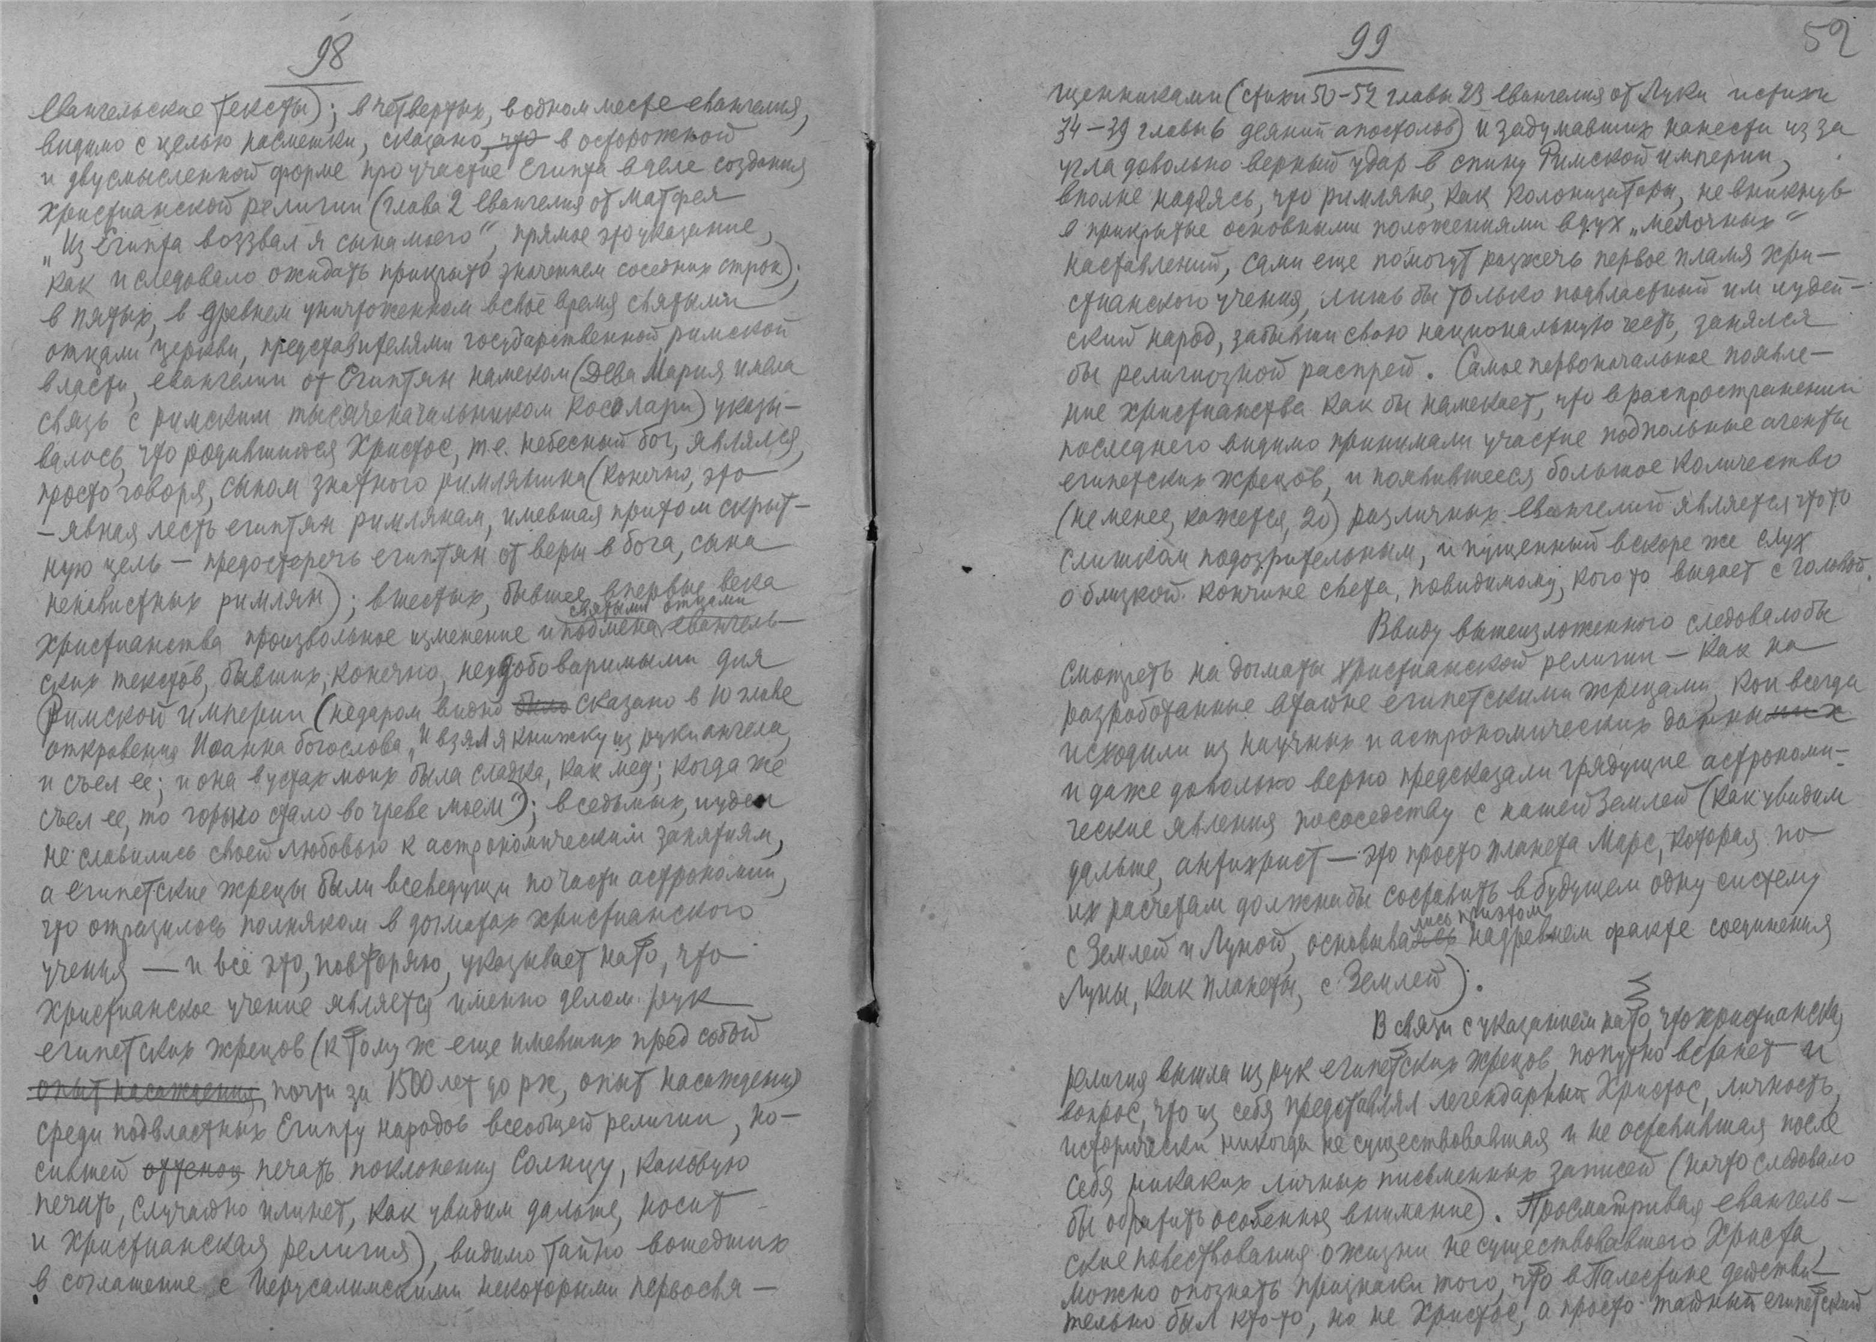 98
Евангельские тексты); в четвертых, в одном месте евангелия,
видимо с целью насмешки, сказано, что в осторожной
и двусмысленной форме про участие Египта в деле создания
христианской религии (глава 2 Евангелия от Матфея
„Из Египта воззвал я сына моего“, прямое это указание,
как и следовало ожидать прикрыто значением соседних строк);
в пятых, в древнем уничтоженном в свое время святыми
отцами церкви, представителями государственной римской
власти, евангелии от Египтян намеком (Дева Мария имела
связь с римским тысяченачальником) указы-
валось, что родившийся Христос, т.е. небесный бог, являлся,
просто говоря, сыном знатного римлянина (конечно, это
— явная лесть египтян римлянам, имевшая притом скрыт-
ную цель — предостеречь египтян от веры в бога, сына
ненавистных римлян); в шестых, бывшее в первые века
святыми отцами
христианства произвольное изменение и подмена евангель-
ских текстов, бывших, конечно, неудобоваримыми для
Римской империи (недаром видно было сказано в 10 главе
откровения Иоанна богослова „и взял я книжку из руки ангела,
и съел ее; и она в устах моих была сладка, как мед; когда же
съел ее, то горько стало во чреве моем“); в седьмых, иудеи
не славились своей любовью к астрономическим занятиям,
а египетские жрецы были всеведущи по части астрономии,
что отразилось полняком в догматах христианского
учения — и всё это, повторяю, указывает на то, что
христианское учение является именно делом рук
египетских жрецов (к тому ж еще имевших пред собой
опыт насаждения, почти за 1500 лет до рх, опыт насаждения
среди подвластных Египту народов всеобщей религии, но-
сившей оттенок печать поклонения Солнцу, каковую
печать, случайно или нет, как увидим дальше, носит
и христианская религия), видимо тайно вошедших
в соглашение с Иерусалимскими некоторыми первосвя-
99
52
щенниками (стихи 50-52 главы 23 Евангелия от Луки и стихи
34-39 главы 6 деяний апостолов) и задумавших нанести из за
угла довольно верный удар в спину Римской империи,
вполне надеясь, что римляне, как колонизаторы, не вникнув
в прикрытые основными положениями в дух „мелочных“
наставлений, сами еще помогут разжечь первое пламя хри-
стианского учения, лишь бы только подвластный им иудей-
ский народ, забывши свою национальную честь, занялся
бы религиозной распрей. Самое первоначальное появле-
ние христианства как бы намекает, что в распространении
последнего видимо принимали участие подпольные агенты
египетских жрецов, и появившееся большое количество
(не менее, кажется, 20) различных Евангелий является что то
слишком подозрительным, и пущенный вскоре же слух
о близкой кончине света, повидимому, кого то выдает с головой.
Ввиду вышеизложенного следовало бы
смотреть на догматы христианской религии — как на
разработанные втайне египетскими жрецами, кои всегда
исходили из научных и астрономических данных
и даже довольно верно предсказали грядущие астрономи-
ческие явления по соседству с нашей Землей (как увидим
дальше, антихрист — это просто планета Марс, которая по
их расчетам должна бы составить в будущем одну систему
лись при этом
с Землей и Луной, основываясь на древнем факте соединения
Луны, как планеты, с Землей).
В связи с указанием на то, что христианская
религия вышла из рук египетских жрецов, попутно встанет и
вопрос, что из себя представлял легендарный Христос, личность,
исторически никогда не существовавшая и не оставившая после
себя никаких личных письменных записей (на что следовало
бы обратить особенное внимание). Просматривая евангель-
ские повествования о жизни не существовавшего Христа,
можно опознать признаки того, что в Палестине действи-
тельно был кто то, но не Христос, а просто тайный египетский